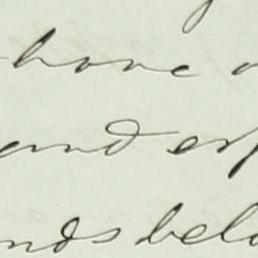 have
and esp
nds belo